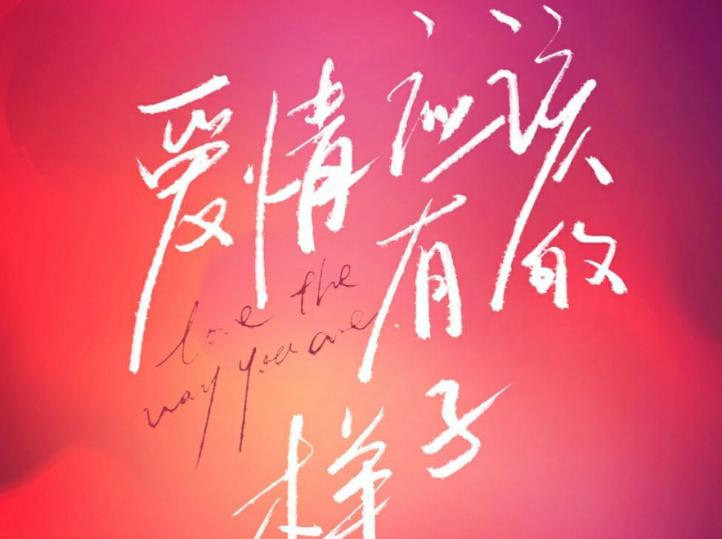 爱情应该
有的
样子
love the
way you are